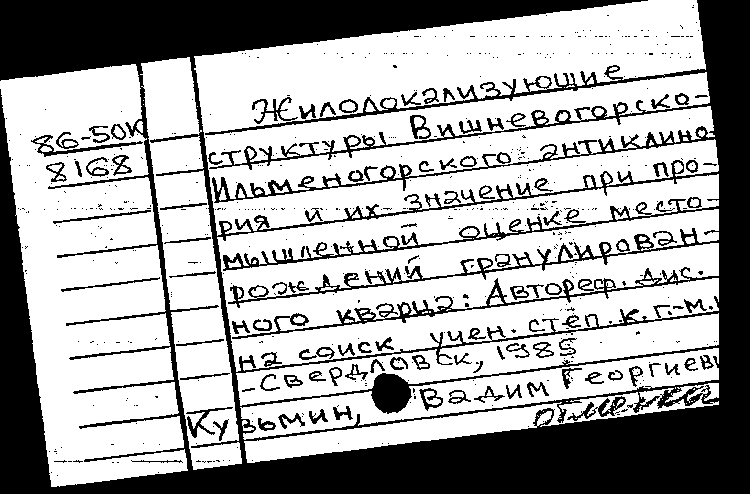 Жилолокализующие
86-50К
8168
структуры Вишневогорско-
Ильменогорского антиклино-
рия и их значение при про-
мышленной оценке место-
рождений гранулирован-
ного кварца: Автореф. дис.
на соиск. учен. степ. к. г.-м.н
-Свердловск, 1985
Кузьмин, Вадим Георгиев
отметка